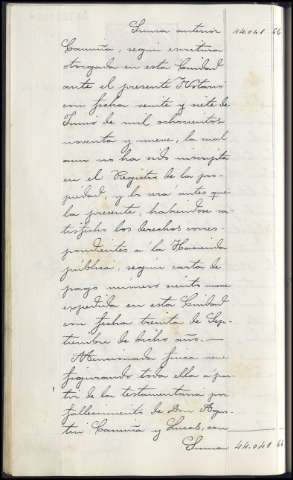 Suma anterior 44.041 66
Camuña, según escritura
otorgada en esta Ciudad
ante el presente Notario
con fecha veinte y siete de
Junio de mil ochocientos
noventa y nueve, la cual
aun no ha sido inscripta
en el Registro de la pro-
piedad y lo será antes que
la presente, habiendose sa-
tisfecho los derechos corres-
pondientes á la Hacienda
pública, según carta de
pago numero ciento once
expedida en esta Ciudad
con fecha treinta de Sep-
tiembre de dicho año.—
Mencionada finca viene
figurando toda ella á par-
tir de la testamentaria por
fallecimiento de Don Agus-
tin Camuña y
Suma 44.041 66